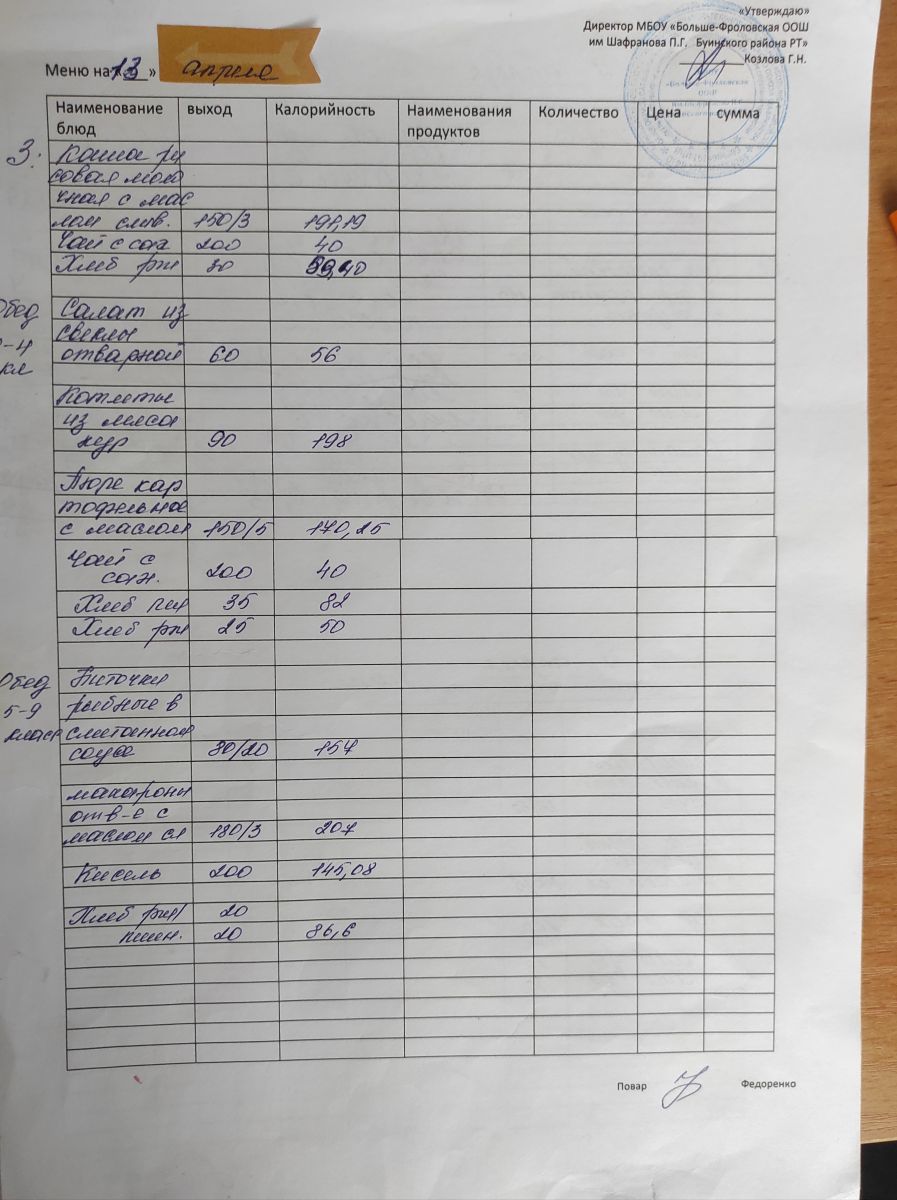 «Утверждаю»
Директор МБОУ «Больше-Фроловская ООШ
им Шафранова П.Г. Буинского района РТ»
Козлова Г.Н.
Меню на «13» апреля
Наименование блюд выход Калорийность Наименования продуктов Количество Цена сумма
З. Каша ри
совая моло
чная с мас
лом слив. 150/3 191,19
Чай с сах 200 40
Хлеб рж 30 59,40
Обед Салат из
свеклы
1-4 отварной 60 56
кл
Котлеты
из мяса
кур 90 198
Пюре кар
тофельное
с маслом 150/5 170,25
Чай с
сах. 200 40
Хлеб пш 35 82
Хлеб рж 25 50
Обед Биточки
5-9 рыбные в
класс сметанном
соусе 80/20 157
макароны
отв-е с
маслом сл 180/3 207
Кисель 200 145,08
Хлеб рж/ 20
пшен. 20 86,6
Повар Федоренко